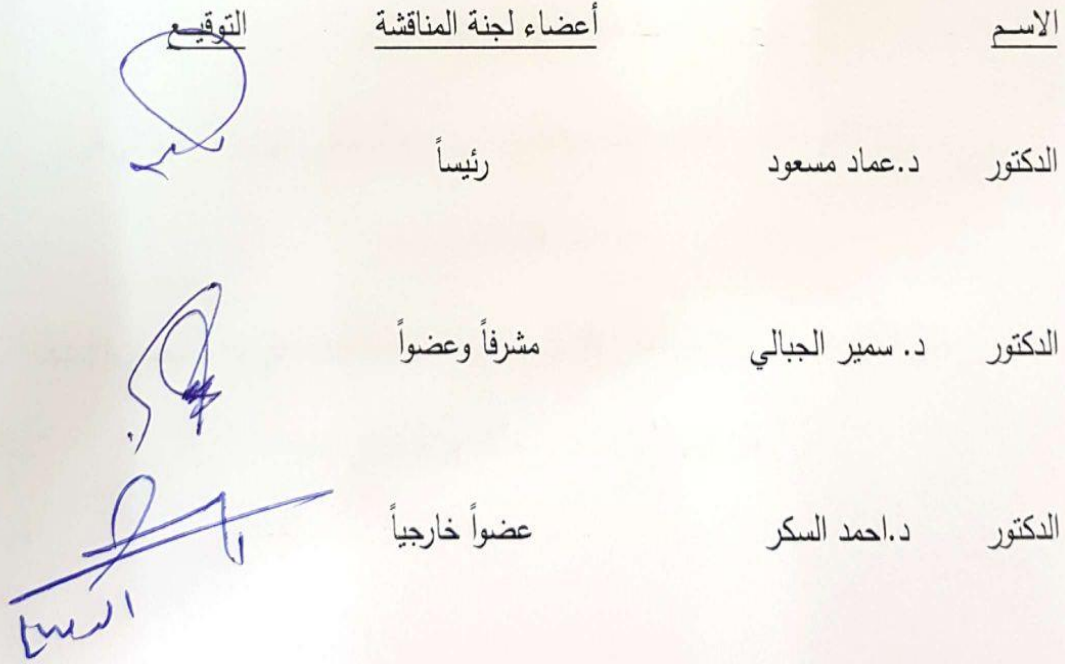 الاسم أعضاء لجنة المناقشة التوقيع
الدكتور د.عماد مسعود رئيساً
الدكتور د. سمير الجبالي مشرفاً وعضواً
الدكتور د.احمد السكر عضواً خارجياً